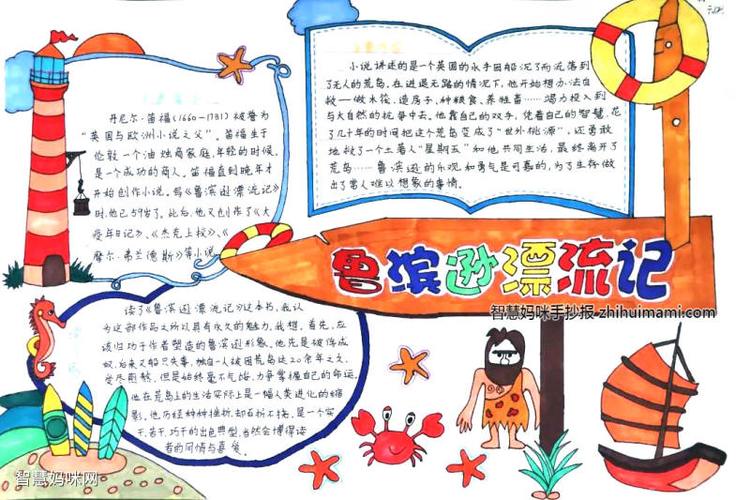 小说讲述的是一个英国的水手因船沉了而流落到
了无人的荒岛，在进退无路的情况下，他开始想办法自
救——做木筏、造房子、种粮食、养牲畜……竭力投入到
与大自然的抗争中去。他靠自己的双手，凭着自己的智慧，花
了几十年的时间把这个荒岛变成了“世外桃源”，还勇敢
地救了一个土著人“星期五”和他共同生活，最终离开了
荒岛……鲁滨逊的乐观和勇气是可嘉的，为了生存做
出了常人难以想象的事情。
丹尼尔·笛福(1660—1731)被誉为
“英国与欧洲小说之父”。笛福生于
伦敦一个油烛商家庭，年轻的时候，
是一个成功的商人。笛福直到晚年才
开始创作小说，写《鲁滨逊漂流记》
时，他已59岁了。此后，他又创作了《大
疫年日记》、《杰克上校》、《
摩尔·弗兰德斯》等小说
鲁滨逊漂流记
智慧妈咪手抄报 zhihuimami.com
读了《鲁滨逊漂流记》这本书，我认
为这部作品之所以具有永久的魅力，我想，首先，应
该归功于作者塑造的鲁滨逊形象。他先是被俘成
奴，后来又船只失事，独自一人被困荒岛达20余年之久，
受尽煎熬，但是始终毫不气馁，力争掌握自己的命运。
他在荒岛上的生活实际上是一幅人类进化的缩
影，他历经种种挫折，却百折不挠，是一个实
干、苦干、巧干的出色典型，当然会博得读
者的同情与喜爱。
智慧妈咪网